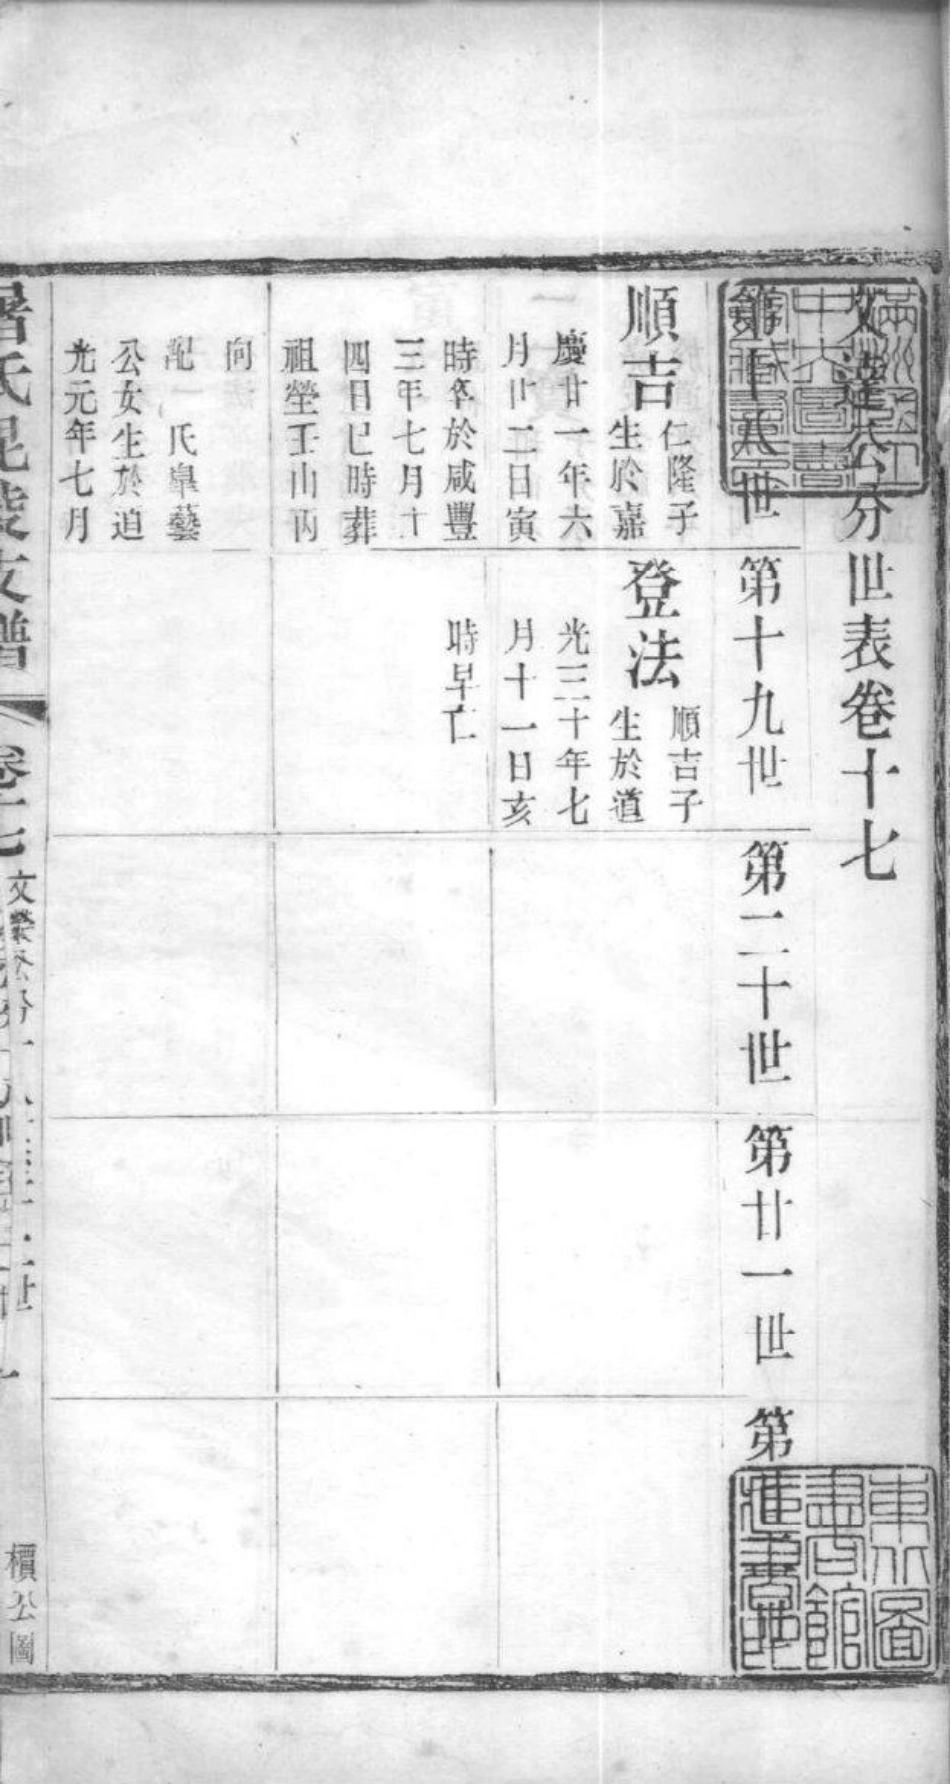 文達公分世表卷十七
第十八世
第十九世
第二十世
第廿一世
第
順吉
仁隆子
生於嘉
慶廿一年六
月廿二日寅
時卒於咸豐
三年七月十
四日巳時葬
祖塋壬山丙
向
配 氏皐藝
公女生於道
光元年七月
登法
順吉子
生於道
光三十年七
月十一日亥
時早亡
氏毘陵支譜
卷十七
櫝公圖